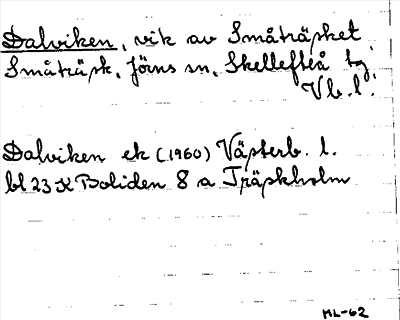 Dalviken, vik av Småträsket
Småträsk, Jörns sn, Skellefteå tg,
Vb. l.
Dalviken ek (1960) Västerb. l.
bl 23 K Boliden 8 a Träskholm
ML-62